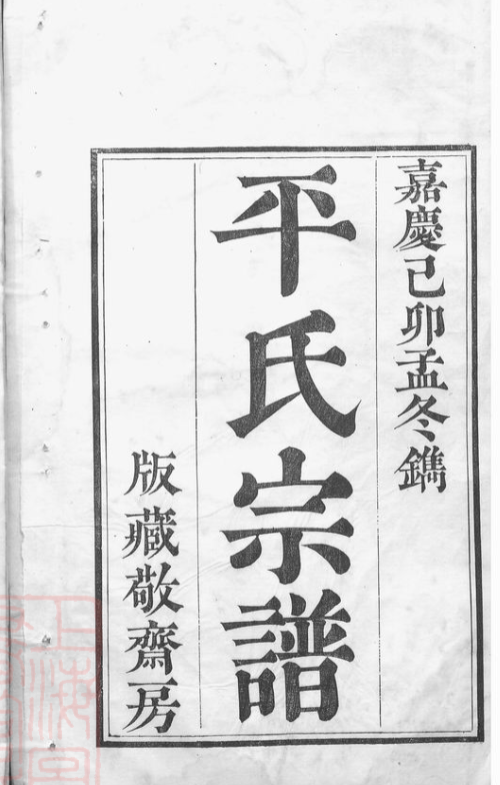 嘉慶己卯孟冬鐫
平氏宗譜
版藏敬齋房
上海